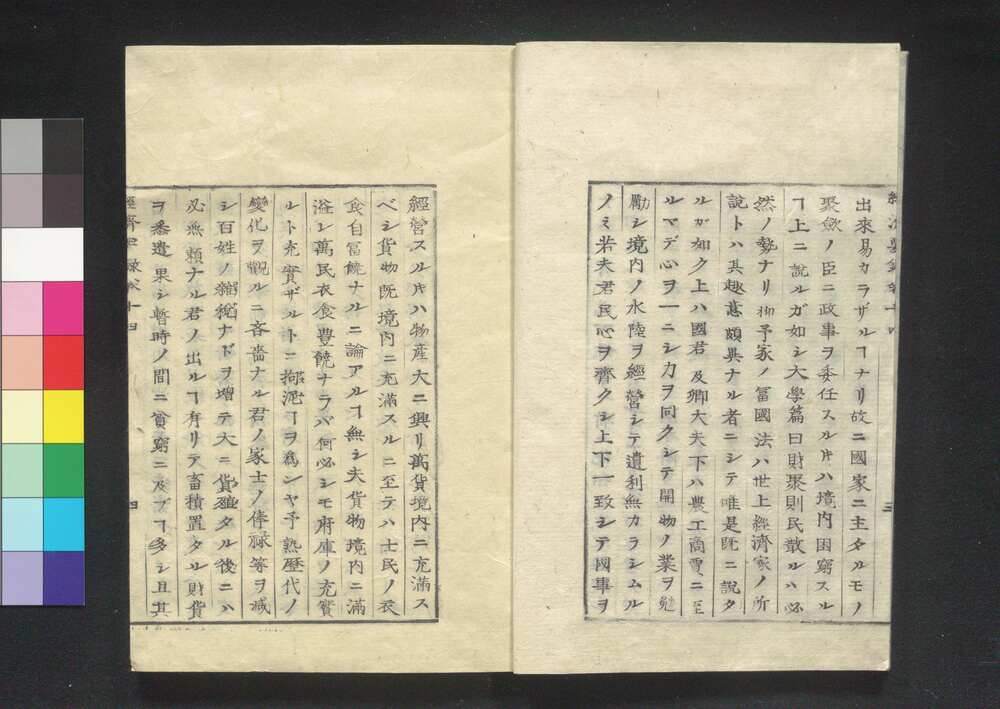 出來易カラザルヿナリ故ニ國家ニ主タルモノ
聚斂ノ臣ニ政事ヲ委任スルㇳキハ境内困窮スル
ヿ上ニ説ルガ如シ大學篇曰財聚則民散ルハ必
然ノ勢ナリ抑予家ノ富國法ハ世上經濟家ノ所
説トハ其趣意頗異ナル者ニシテ唯是既ニ説タ
ルガ如ク上ハ國君及卿大夫下ハ農工商賈ニ至
ルマデ心ヲ一ニシ力ヲ同クシテ開物ノ業ヲ勉
勵シ境内ノ水陸ヲ經營シテ遺利無カラシムル
ノミ若夫君民心ヲ齊クシ上下一致シテ國事ヲ
三
經營スルㇳキハ物產大ニ興リ萬貨境内ニ充滿ス
ベシ貨物既境内ニ充滿スルニ至テハ士民ノ衣
食自富饒ナルニ論アルヿ無シ夫貨物境内ニ滿
溢シ萬民衣食豐饒ナラバ何必シモ府庫ノ充實
ルト充實ザルトニ拘泥ヿヲ爲シヤ予熟歷代ノ
變化ヲ觀ルニ吝嗇ナル君ノ家士ノ俸祿等ヲ減
シ百姓ノ雜稅ナドヲ增テ大ニ貨殖タル後ニハ
必無賴ナル君ノ出ルヿ有リテ畜積置タル財貨
ヲ悉遣果シ暫時ノ間ニ貧窮ニ及ブヿ多シ且其
經濟要錄卷十四
四